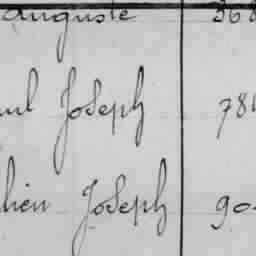 Auguste 368
ul Joseph 784
hien Joseph 90